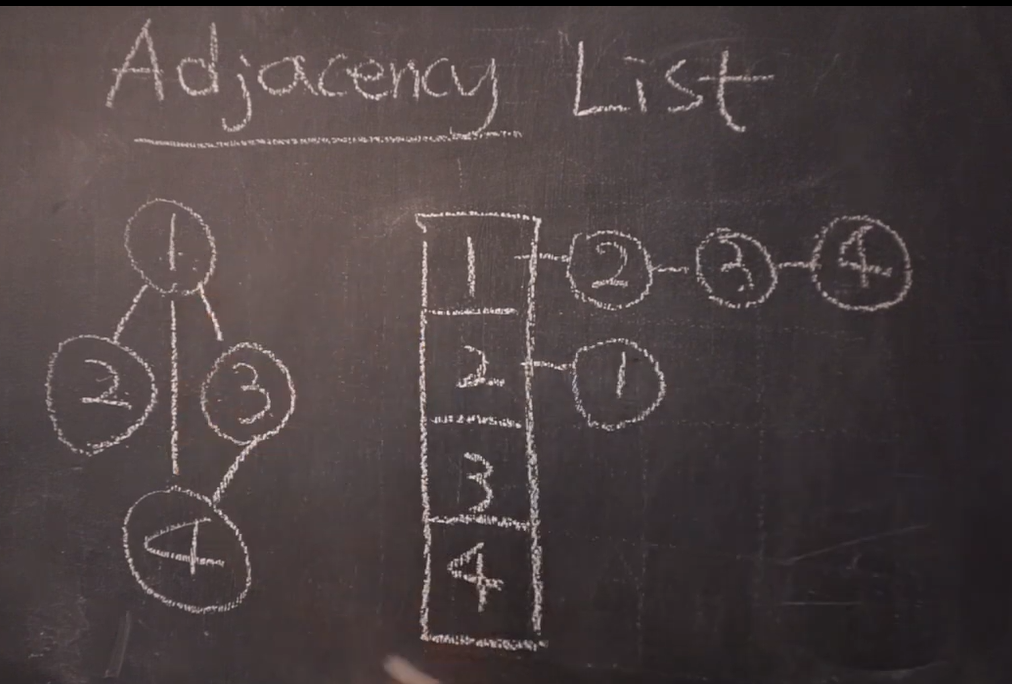 Adjacency List
1
2 3
4
1 2 3 4
2 1
3
4